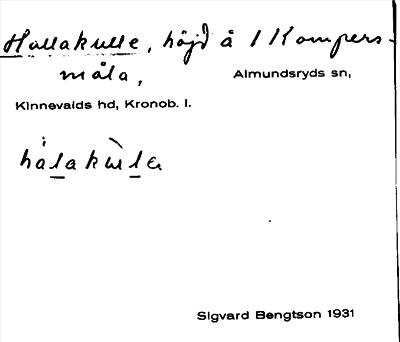 Hallakulle, höjd å 1 Kompers-
måla, Almundsryds sn,
Kinnevalds hd, Kronob. l.
hàlakùlɐ
Sigvard Bengtson 1931